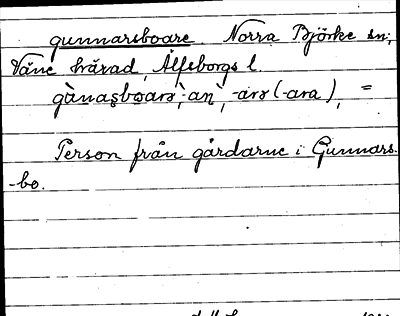 gunnarsboare Norra Björke sn;
Väne härad, Älfsborgs l.
gànaʂboarə, an, -arə (-ara), =
Person från gårdarne i Gunnars-
-bo.